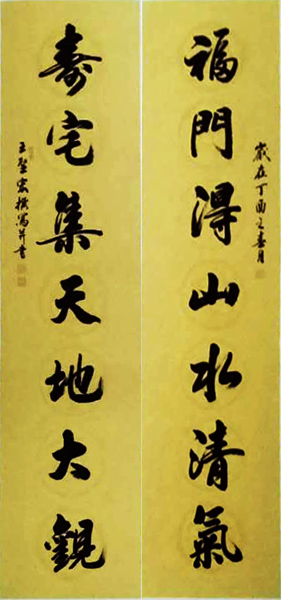 歲在丁酉之春月
福門得山水清氣
壽宅集天地大觀
撰寫并書